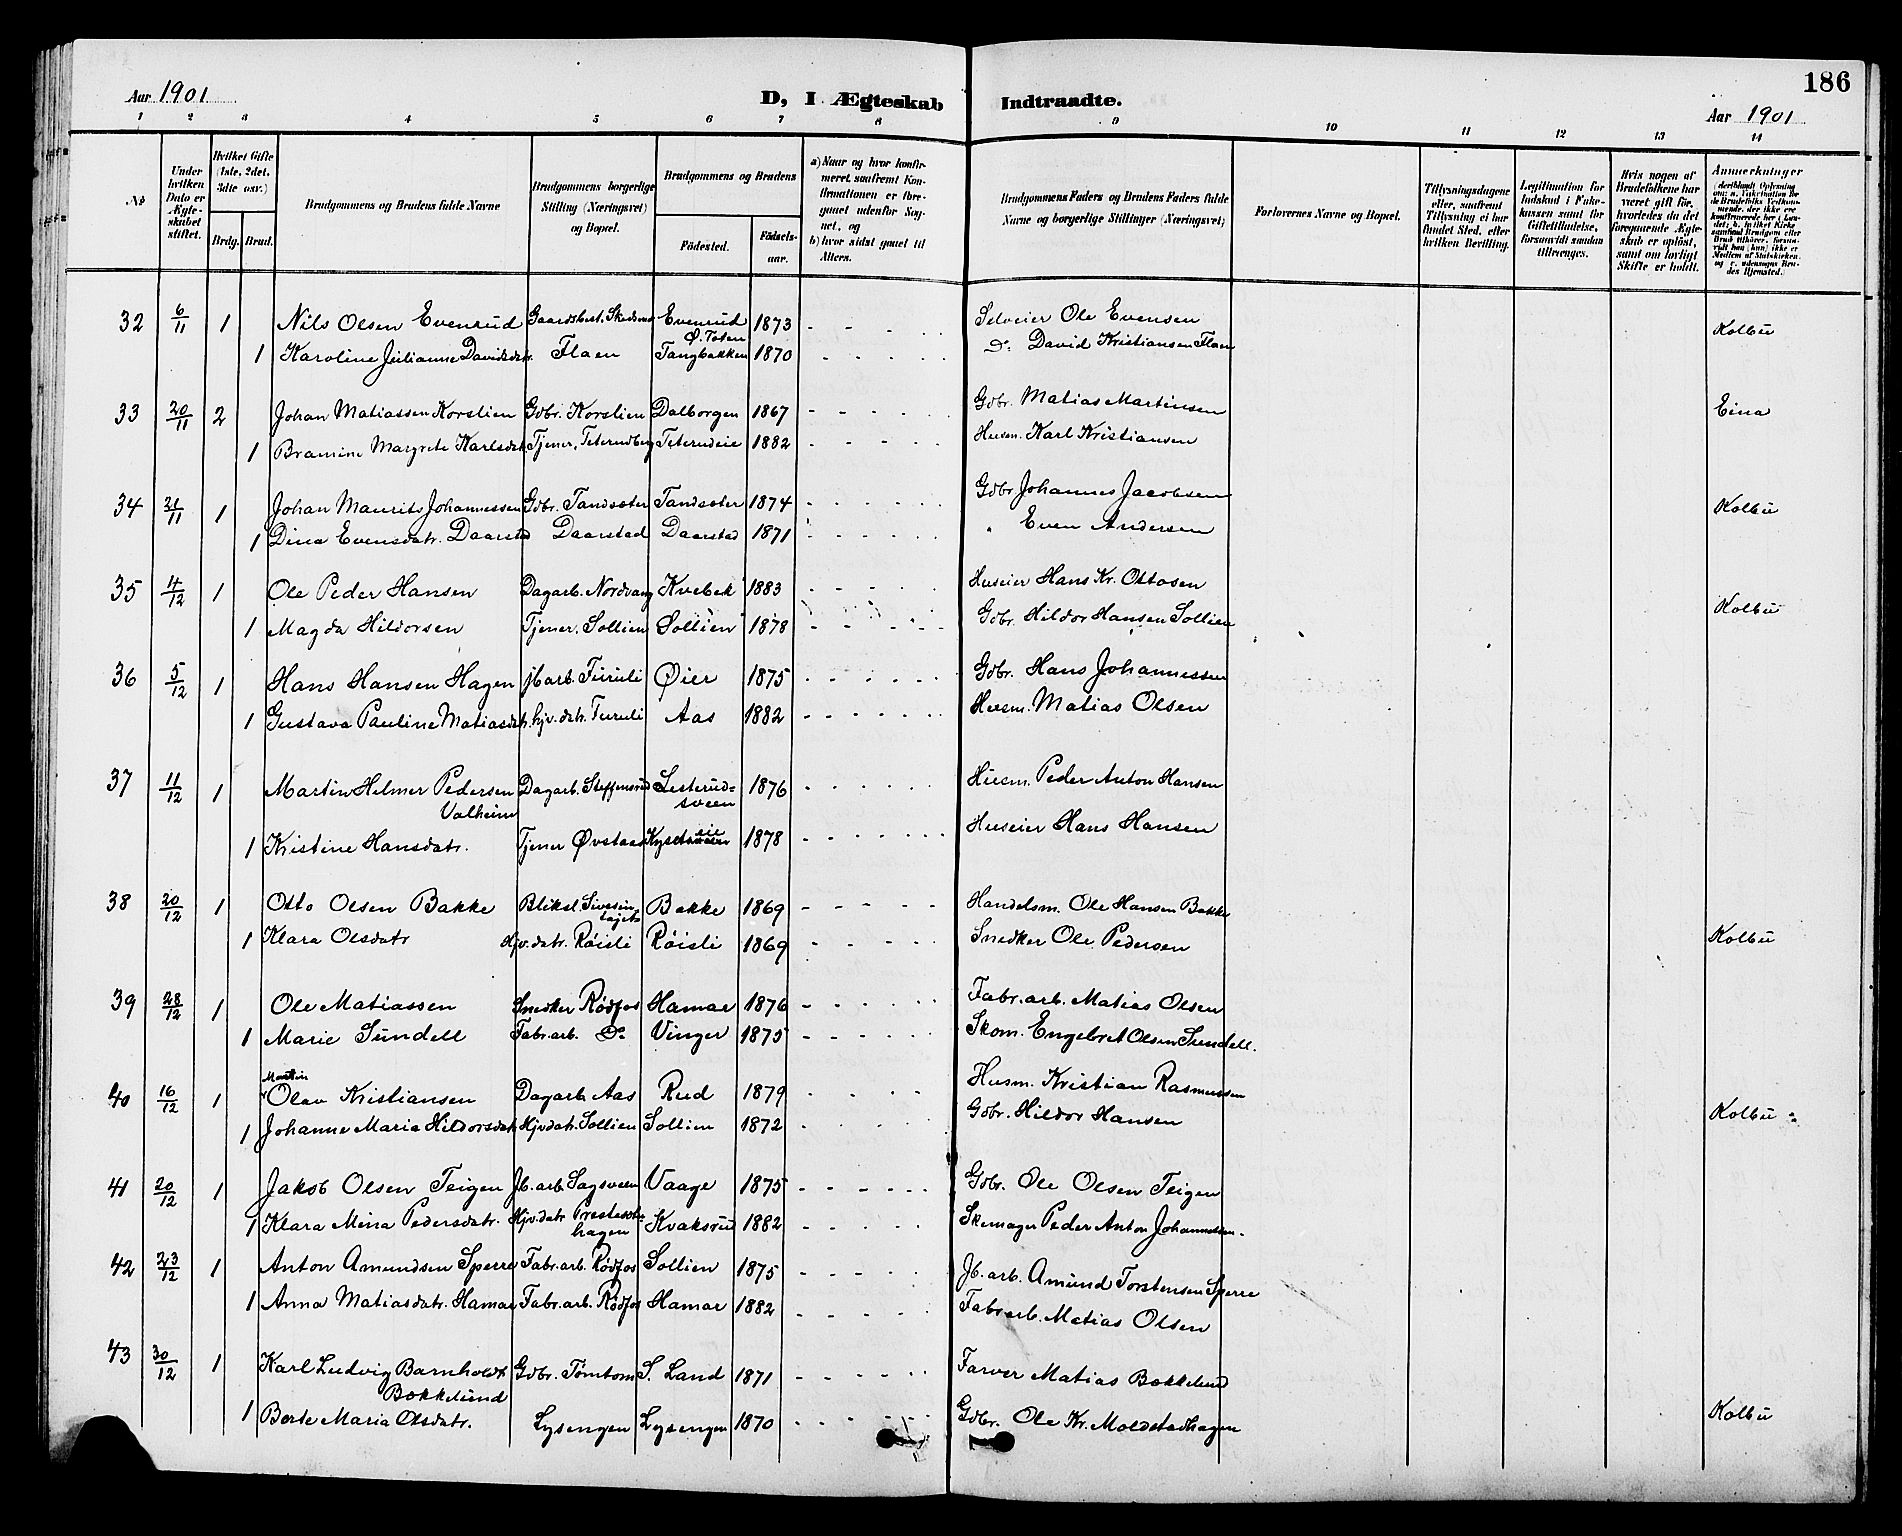 186
Aar 1901
D, I Ægteskab Indtraadte.
Aar 1901
1 2 3 4 5 6 7 8 9 10 11 12 13 14
No
Under hvilken Dato er Ægteskabet stiftet.
Hvilket Gifte (1ste, 2det, 3die osv.)
Brdg. Brud.
Brudgommens og Brudens fulde Navne
Brudgommens borgerlige Stilling (Næringsvei) og Bopæl.
Brudgommens og Brudens
Fødested.
Fødselsaar.
a) Naar og hvor konfirmeret, saafremt Konfirmationen er foregaaet udenfor Sognet, og
b) hvor sidst gaaet til Alters.
Brudgommens Faders og Brudens Faders fulde Navne og borgerlige Stillinger (Næringsvei)
Forlovernes Navne og Bopæl.
Tillysningsdagene eller, saafremt Tillysning ei har fundet Sted, efter hvilken Bevilling.
Legitimation for Indskud i Enkekassen samt for Giftetilladelse, forsaavidt saadan tiltrænges.
Hvis nogen af Brudefolkene har været gift før, hvorledes da det foregaaende Ægteskab er opløst, samt om lovligt Skifte er holdt.
Anmerkninger
32 6/11 1 Nils Olsen Evenrud Gaardsbest. Skedsmo Evenrud Ø. Toten 1873 Selveier Ole Evensen Kolbu
1 Karoline Julianne Davidsdatr. Flaen Tangbakken 1870 Do David Kristiansen Flaen
33 20/11 2 Johan Matiassen Korslien Gdbr. Korslien Dalborgen 1867 Gdbr. Matias Martinsen Eina
1 Bramine Margrete Karlsdatr. Tjener, Teterudberg Teterudeie 1882 Husm. Karl Kristiansen
34 21/11 1 Johan Maurits Johannessen Gdbr. Tandsæter Tandsæter 1874 Gdbr Johannes Jacobsen Kolbu
1 Dina Evensdatr. Daarstad Daarstad Daarstad 1871 " Even Andersen
35 4/12 1 Ole Peder Hansen Dagarb. Nordvang Kvebek 1883 Huseier Hans Kr. Ottosen
1 Magda Hildorsen Tjener. Sollien Sollien 1878 Gdbr. Hildor Hansen Sollien Kolbu
36 5/12 1 Hans Hansen Hagen Jb. arb. Tiruli Øier 1875 Gdbr. Hans Johannessen
1 Gustava Pauline Matiasdatr. hjv. datr. Turuli Aas 1882 Husm. Matias Olsen
37 11/12 1 Martin Helmer Pedersen Valheim Dagarb. Steffensrud Sesterudsveen 1876 Husm. Peder Anton Hansen
1 Kristine Hansdatr. Tjener Øvstaas 1878 Huseier Hans Hansen
38 20/12 1 Otto Olsen Bakke Bliksl. Bakke 1869 Handelsm. Ole Hansen Bakke
1 Klara Olsdatr Hjv. datr. Røisli Røisli 1869 Snedker Ole Pedersen Kolbu
39 28/12 1 Ole Matiassen Snedker Rødfos Hamar 1876 Fabr. arb. Matias Olsen
1 Marie Sundell Fabr. arb. Do Vinger 1875 Skom. Engebret Olsen Sundell.
40 16/12 1 Martin Olav Kristiansen Dagarb. Aas Rud 1879 Husm. Kristian Rasmussen
1 Johanne Maria Hildorsdatr Hjv datr. Sollien Sollien 1872 Gdbr. Hildor Hansen Kolbu
41 20/12 1 Jakob Olsen Teigen Jb. arb. Sagsveen Vaage 1875 Gdbr. Ole Olsen Teigen
1 Klara Mina Pedersdatr. Hjv. datr Kvaksrud 1882 Skomager Peder Anton Johannessen.
42 23/12 1 Anton Amundsen Sperre Fabr. arb. Rødfos Sollien 1875 Jb. arb. Amund Torstensen Sperre
1 Anna Matiasdatr. Hamar Fabr. arb. Rødfos Hamar 1882 Fabr arb. Matias Olsen
43 30/12 1 Karl Ludvig Barnholdt Bakkelund Gdbr. Tømtom S. Land 1871 Farver Matias Bakkelund
1 Berte Maria Olsdatr. Lysengen Lysengen 1870 Gdbr. Ole Kr. Moldstadhagen Kolbu